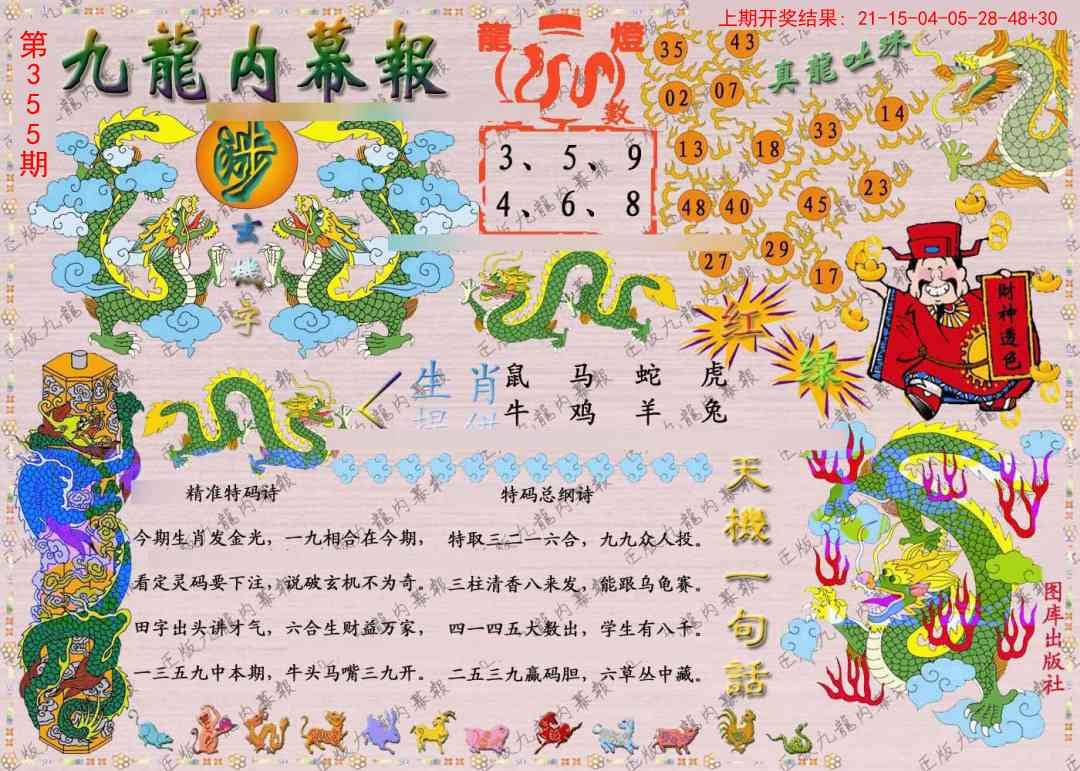 上期开奖结果: 21-15-04-05-28-48+30
第355期
九龍内幕報
龍燈數
3、5、9
4、6、8
35 43
02 07
13 18 33 14
48 40 45 23
27 29 17
真龍吐珠
玄機字
财神透色
红
绿
生肖
鼠 马 蛇 虎
牛 鸡 羊 兔
精准特码诗
今期生肖发金光，一九相合在今期，
看定灵码要下注，说破玄机不为奇。
田字出头讲才气，六合生财益万家，
一三五九中本期，牛头马嘴三九开。
特码总纲诗
特取三二一六合，九九众人投。
三柱清香八来发，能跟乌龟赛。
四一四五大数出，学生有八十。
二五三九赢码胆，六草丛中藏。
天機一句話
图库出版社
正版九龍内幕報